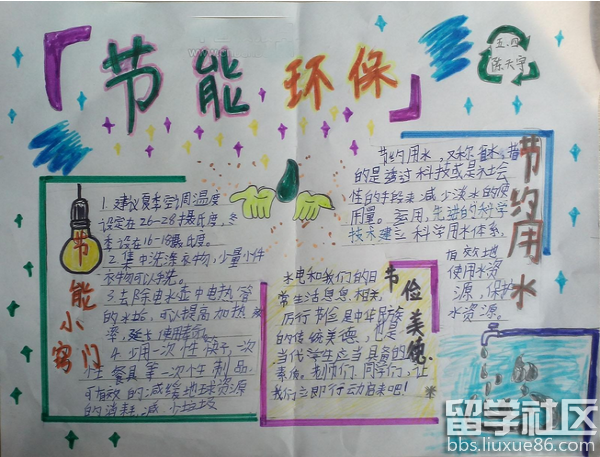 节能环保
五.四
陈天宇
节能小窍门
1.建议夏季空调温度
设定在26-28摄氏度,冬
季设在16-18摄氏度。
2.集中洗涤衣物,少量小件
衣物可以手洗。
3.去除电水壶中电热管
的水垢,可以提高加热效
率,延长使用寿命。
4.少用一次性筷子,一次
性餐具等一次性制品,
可有效的减缓地球资源
的消耗,减少垃圾
节俭美德
水电和我们的日
常生活息息相关,
厉行节俭是中华民族
的传统美德,也是
当代学生应当具备的
素质。老师们、同学们,让
我们立即行动启来吧!
节约用水
节约用水,又称
的是透过科技或是社会
性的手段来减少淡水的使
用量。运用先进的科学
技术建立科学用水体系,
有效地
使用水资
源,保护
水资源。
留学社区
bbs.liuxue86.com